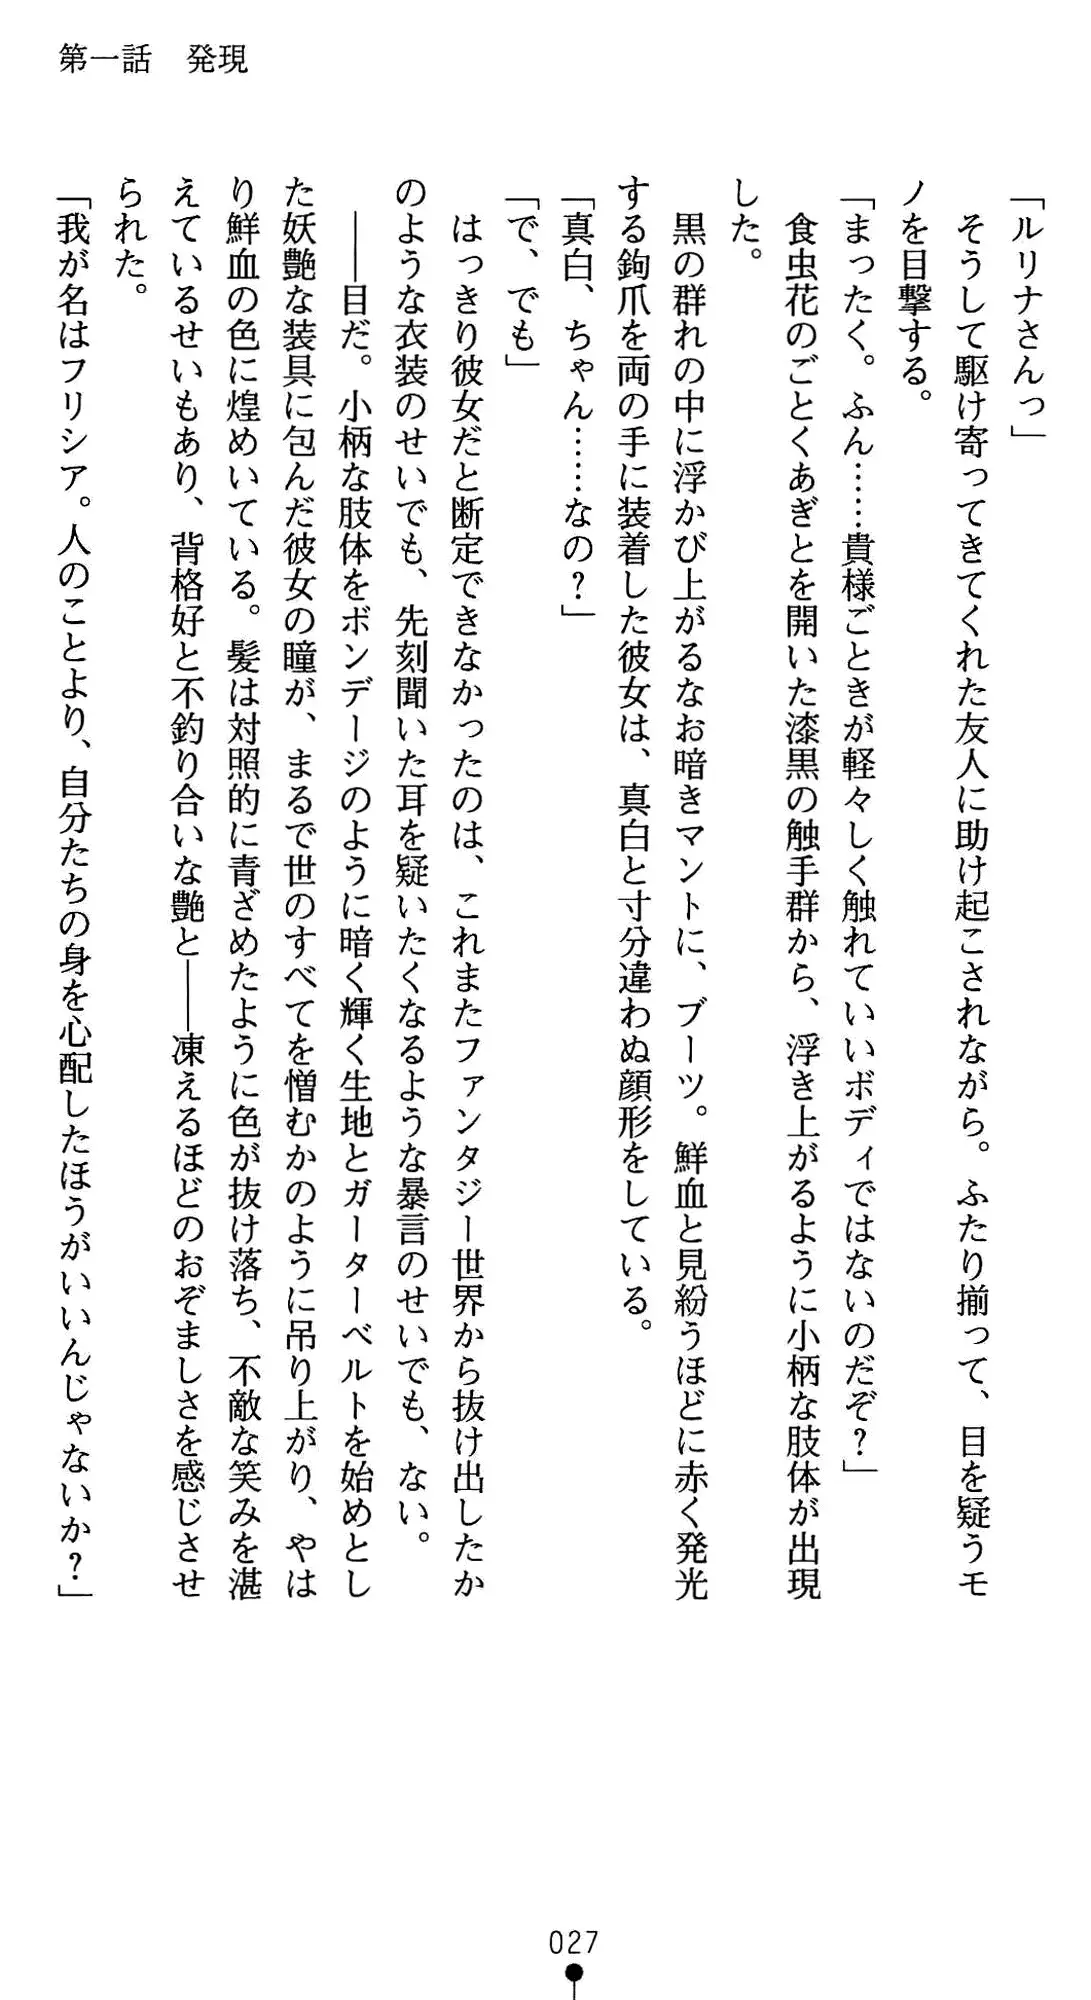 第一話　発現
「ルリナさんっ」
　そうして駆け寄ってきてくれた友人に助け起こされながら。ふたり揃って、目を疑うモ
ノを目撃する。
「まったく。ふん……貴様ごときが軽々しく触れていいボディではないのだぞ？」
　食虫花のごとくあぎとを開いた漆黒の触手群から、浮き上がるように小柄な肢体が出現
した。
　黒の群れの中に浮かび上がるなお暗きマントに、ブーツ。鮮血と見紛うほどに赤く発光
する鉤爪を両の手に装着した彼女は、真白と寸分違わぬ顔形をしている。
「真白、ちゃん……なの？」
「で、でも」
　はっきり彼女だと断定できなかったのは、これまたファンタジー世界から抜け出したか
のような衣装のせいでも、先刻聞いた耳を疑いたくなるような暴言のせいでも、ない。
　――目だ。小柄な肢体をボンデージのように暗く輝く生地とガーターベルトを始めとし
た妖艶な装具に包んだ彼女の瞳が、まるで世のすべてを憎むかのように吊り上がり、やは
り鮮血の色に煌めいている。髪は対照的に青ざめたように色が抜け落ち、不敵な笑みを湛
えているせいもあり、背格好と不釣り合いな艶と――凍えるほどのおぞましさを感じさせ
られた。
「我が名はフリシア。人のことより、自分たちの身を心配したほうがいいんじゃないか？」
027